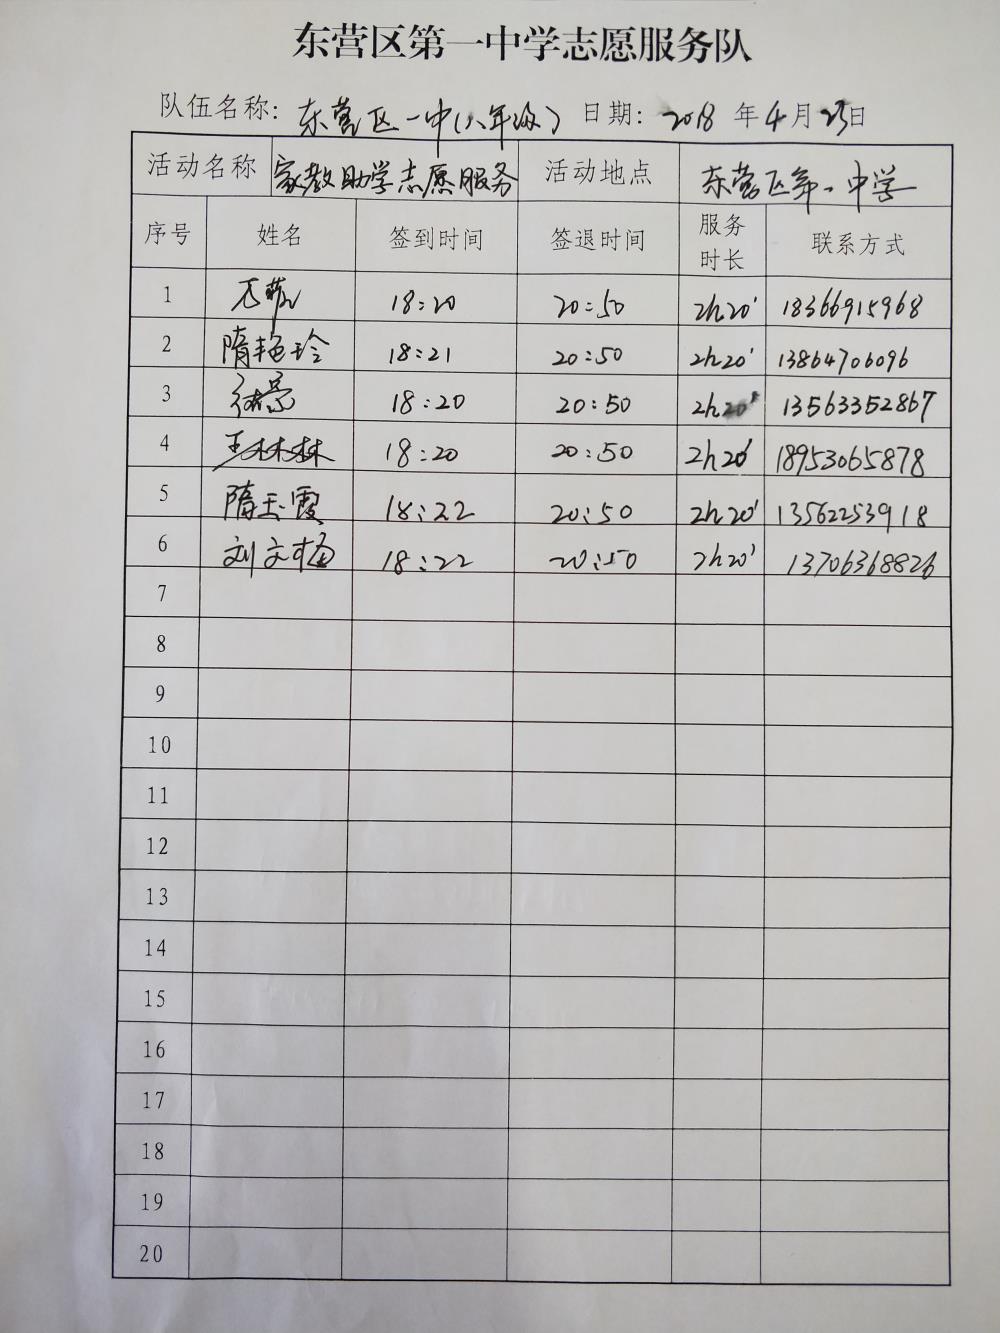 东营区第一中学志愿服务队
队伍名称: 东营区一中(八年级) 日期: 2018 年 4 月 23 日
活动名称 家教助学志愿服务 活动地点 东营区第一中学
序号 姓名 签到时间 签退时间 服务时长 联系方式
1 18:20 20:50 2h20' 18366915968
2 隋艳玲 18:21 20:50 2h20' 13864706096
3 徐景 18:20 20:50 2h20' 13563352867
4 王林林 18:20 20:50 2h20' 18953065878
5 隋玉霞 18:22 20:50 2h20' 13562253918
6 刘文杨 18:22 20:50 2h20' 13706368826
7
8
9
10
11
12
13
14
15
16
17
18
19
20